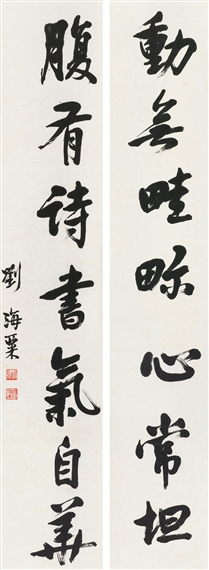 動無畦畛心常坦
腹有詩書氣自華
劉海粟